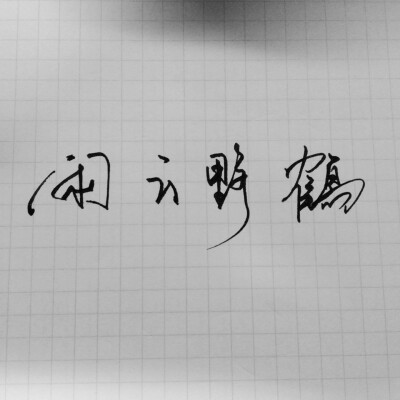 闲云野鹤